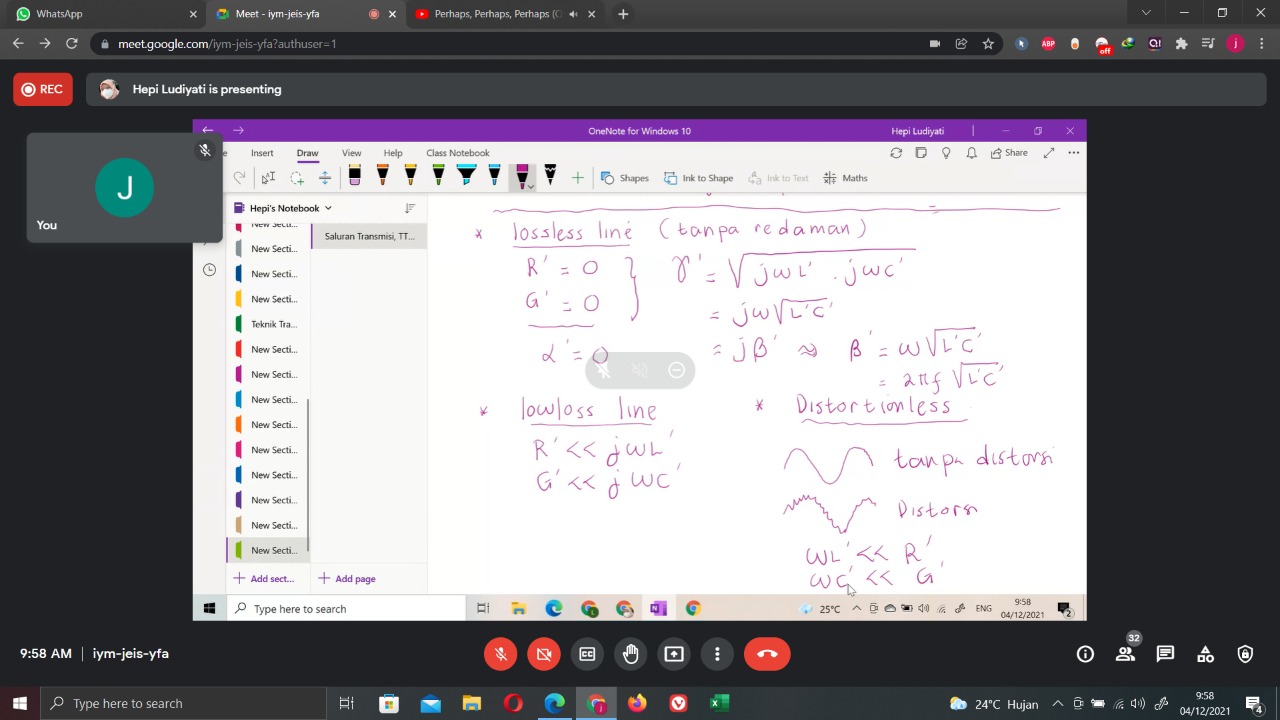 WhatsApp
Meet - iym-jeis-yfa
Perhaps, Perhaps, Perhaps (
meet.google.com/iym-jeis-yfa?authuser=1
ABP
off
j
REC
Hepi Ludiyati is presenting
OneNote for Windows 10
Hepi Ludiyati
Insert Draw View Help Class Notebook
Share
Shapes
Ink to Shape
Ink to Text
Maths
J
You
Hepi's Notebook
Saluran Transmisi, TT...
New Secti...
New Secti...
New Secti...
New Secti...
Teknik Tra...
New Secti...
New Secti...
New Secti...
New Secti...
New Secti...
New Secti...
New Secti...
New Secti...
New Secti...
Add sect...
Add page
* lossless line (tanpa redaman)
R' = 0
G' = 0
α' = 0
γ' = √jωL' . jωC'
= jω√L'C'
= jβ' ≈> β' = ω√L'C'
= 2πf √L'C'
* lowloss line
R' << jωL'
G' << jωC'
* Distortionless
tanpa distorsi
Distorsi
ωL' << R'
ωC' << G'
Type here to search
25°C
ENG
9:58
04/12/2021
2
9:58 AM | iym-jeis-yfa
32
Type here to search
24°C Hujan
9:58
04/12/2021
4